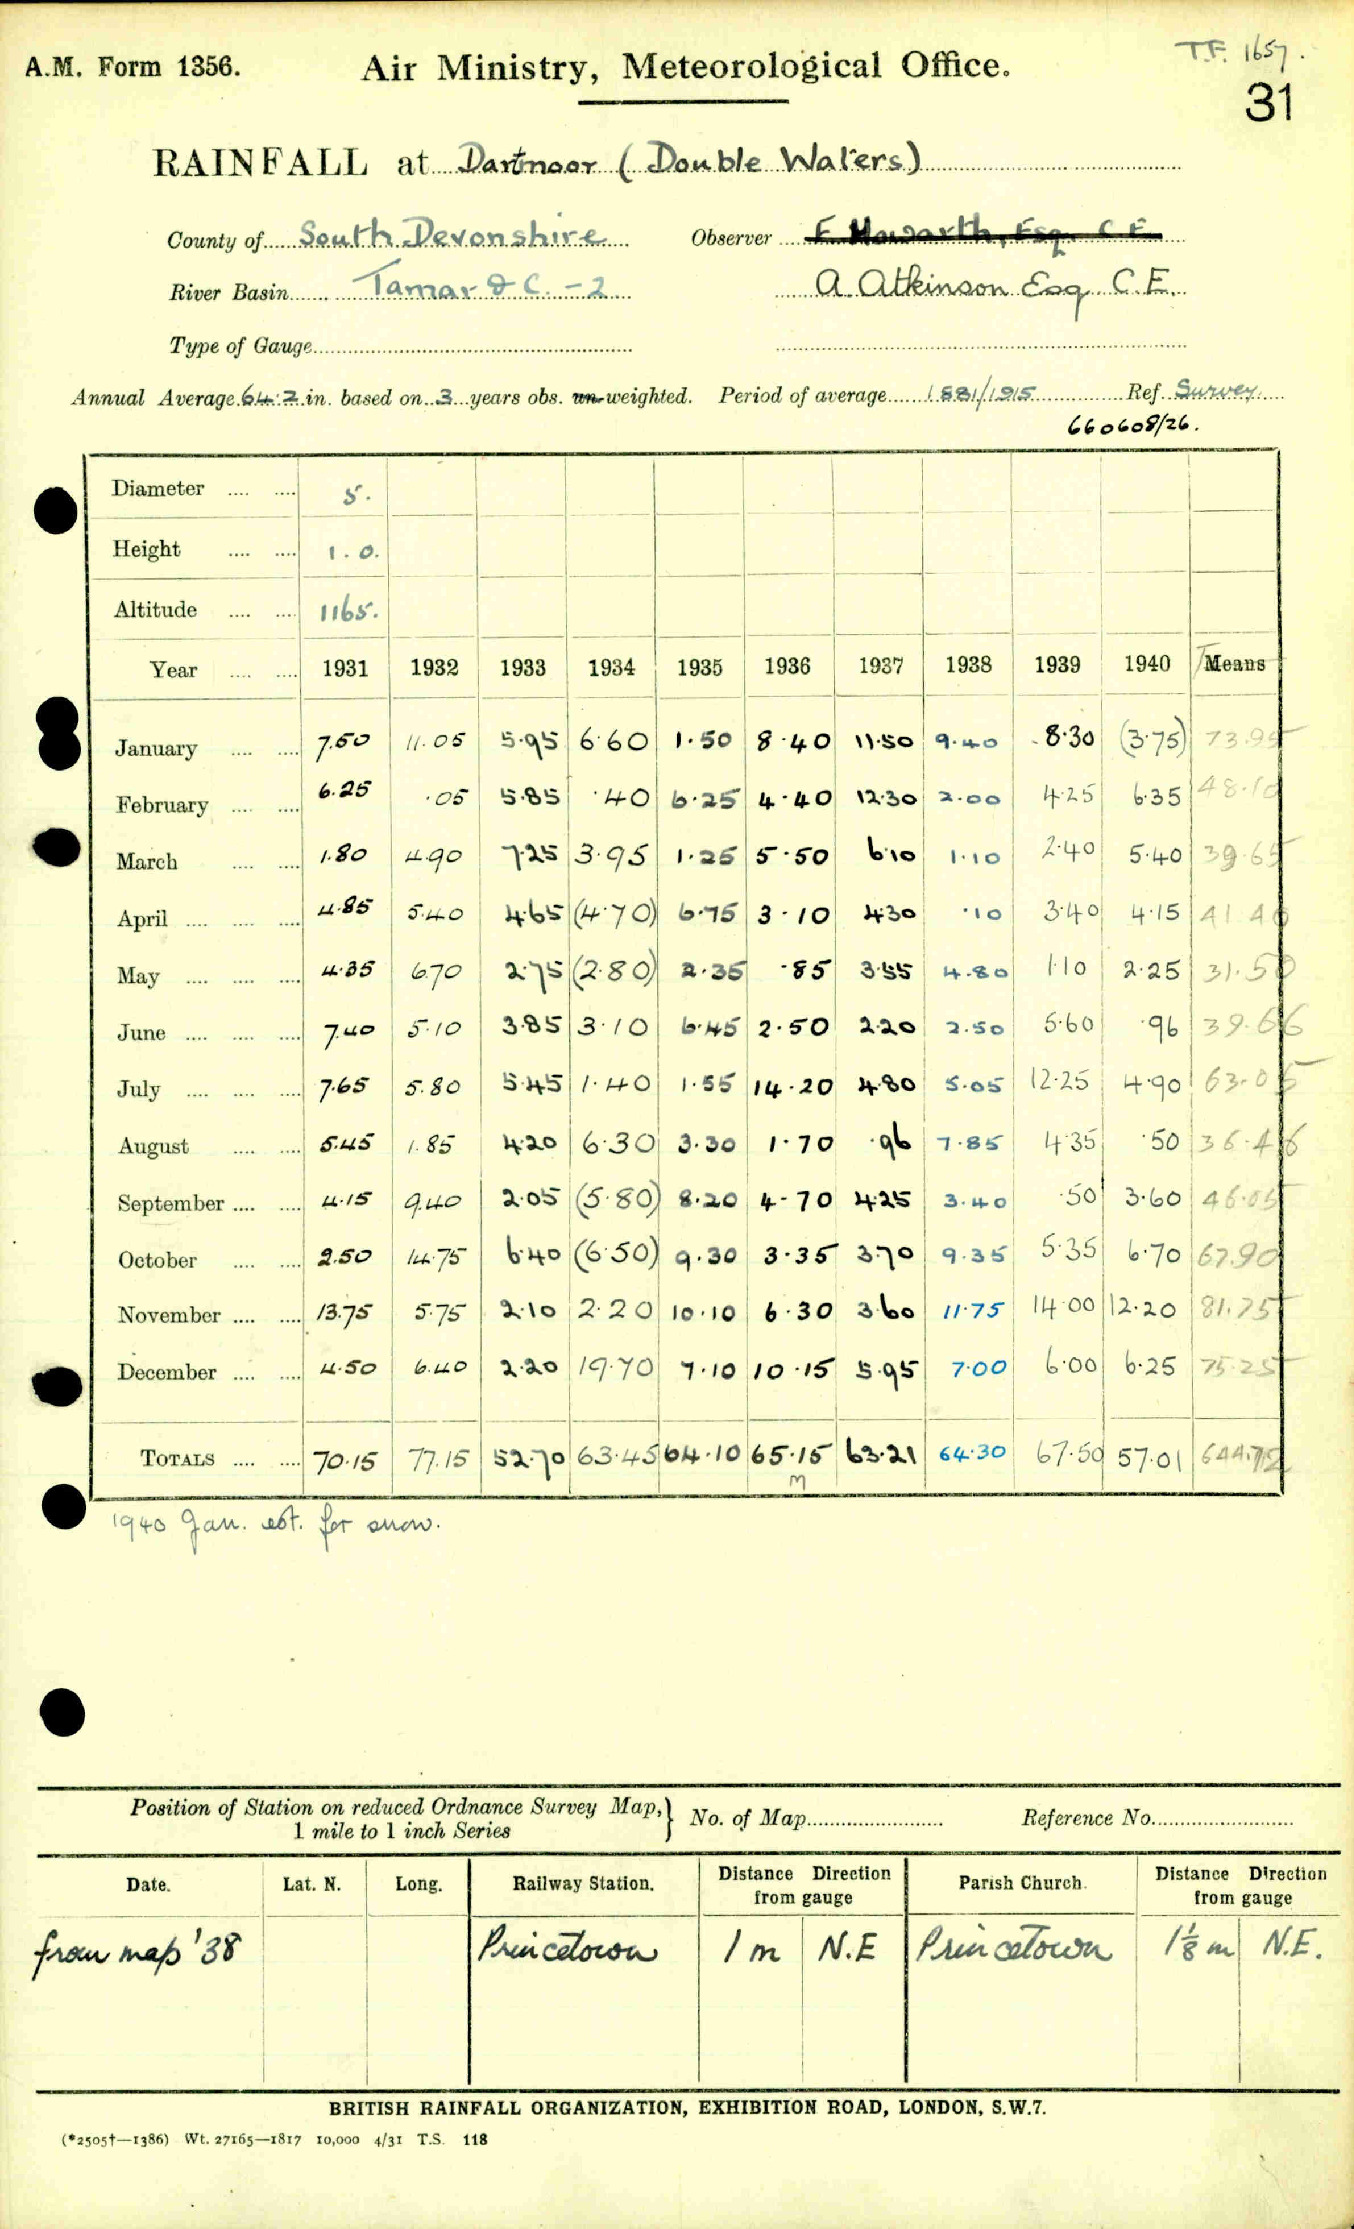 T.F. 1657.
A.M. Form 1356. Air Ministry, Meteorological Office.
31
RAINFALL at Dartmoor (Double Waters)
County of South Devonshire Observer F Howarth, Esq. C E
River Basin Tamar & C. - 2 A. Atkinson Esq C.E.
Type of Gauge
Annual Average 64.2 in. based on 3 years obs. un-weighted. Period of average 1881/1915 Ref. Survey
660608/26.
Diameter 5.
Height 1.0.
Altitude 1165.
Year 1931 1932 1933 1934 1935 1936 1937 1938 1939 1940 Means
January 7.50 11.05 5.95 6.60 1.50 8.40 11.50 9.40 8.30 (3.75) 73.95
February 6.25 .05 5.85 .40 6.25 4.40 12.30 2.00 4.25 6.35 48.10
March 1.80 4.90 7.25 3.95 1.25 5.50 6.10 1.10 2.40 5.40 39.65
April 4.85 5.40 4.65 (4.70) 6.75 3.10 4.30 .10 3.40 4.15 41.40
May 4.35 6.70 2.75 (2.80) 2.35 .85 3.55 4.80 1.10 2.25 31.50
June 7.40 5.10 3.85 3.10 6.45 2.50 2.20 2.50 5.60 .96 39.66
July 7.65 5.80 5.45 1.40 1.55 14.20 4.80 5.05 12.25 4.90 63.05
August 5.45 1.85 4.20 6.30 3.30 1.70 .96 7.85 4.35 .50 36.46
September 4.15 9.40 2.05 (5.80) 8.20 4.70 4.25 3.40 .50 3.60 46.05
October 2.50 14.75 6.40 (6.50) 9.30 3.35 3.70 9.35 5.35 6.70 67.90
November 13.75 5.75 2.10 2.20 10.10 6.30 3.60 11.75 14.00 12.20 81.75
December 4.50 6.40 2.20 19.70 7.10 10.15 5.95 7.00 6.00 6.25 75.25
TOTALS 70.15 77.15 52.70 63.45 64.10 65.15 63.21 64.30 67.50 57.01 644.72
M
1940 Jan. est. for snow.
Position of Station on reduced Ordnance Survey Map, } No. of Map Reference No.
1 mile to 1 inch Series
Date. Lat. N. Long. Railway Station. Distance Direction from gauge Parish Church. Distance Direction from gauge
from map '38 Princetown 1 m N.E Princetown 1 1/8 m N.E.
BRITISH RAINFALL ORGANIZATION, EXHIBITION ROAD, LONDON, S.W.7.
(*2505†—1386) Wt. 27165—1817 10,000 4/31 T.S. 118